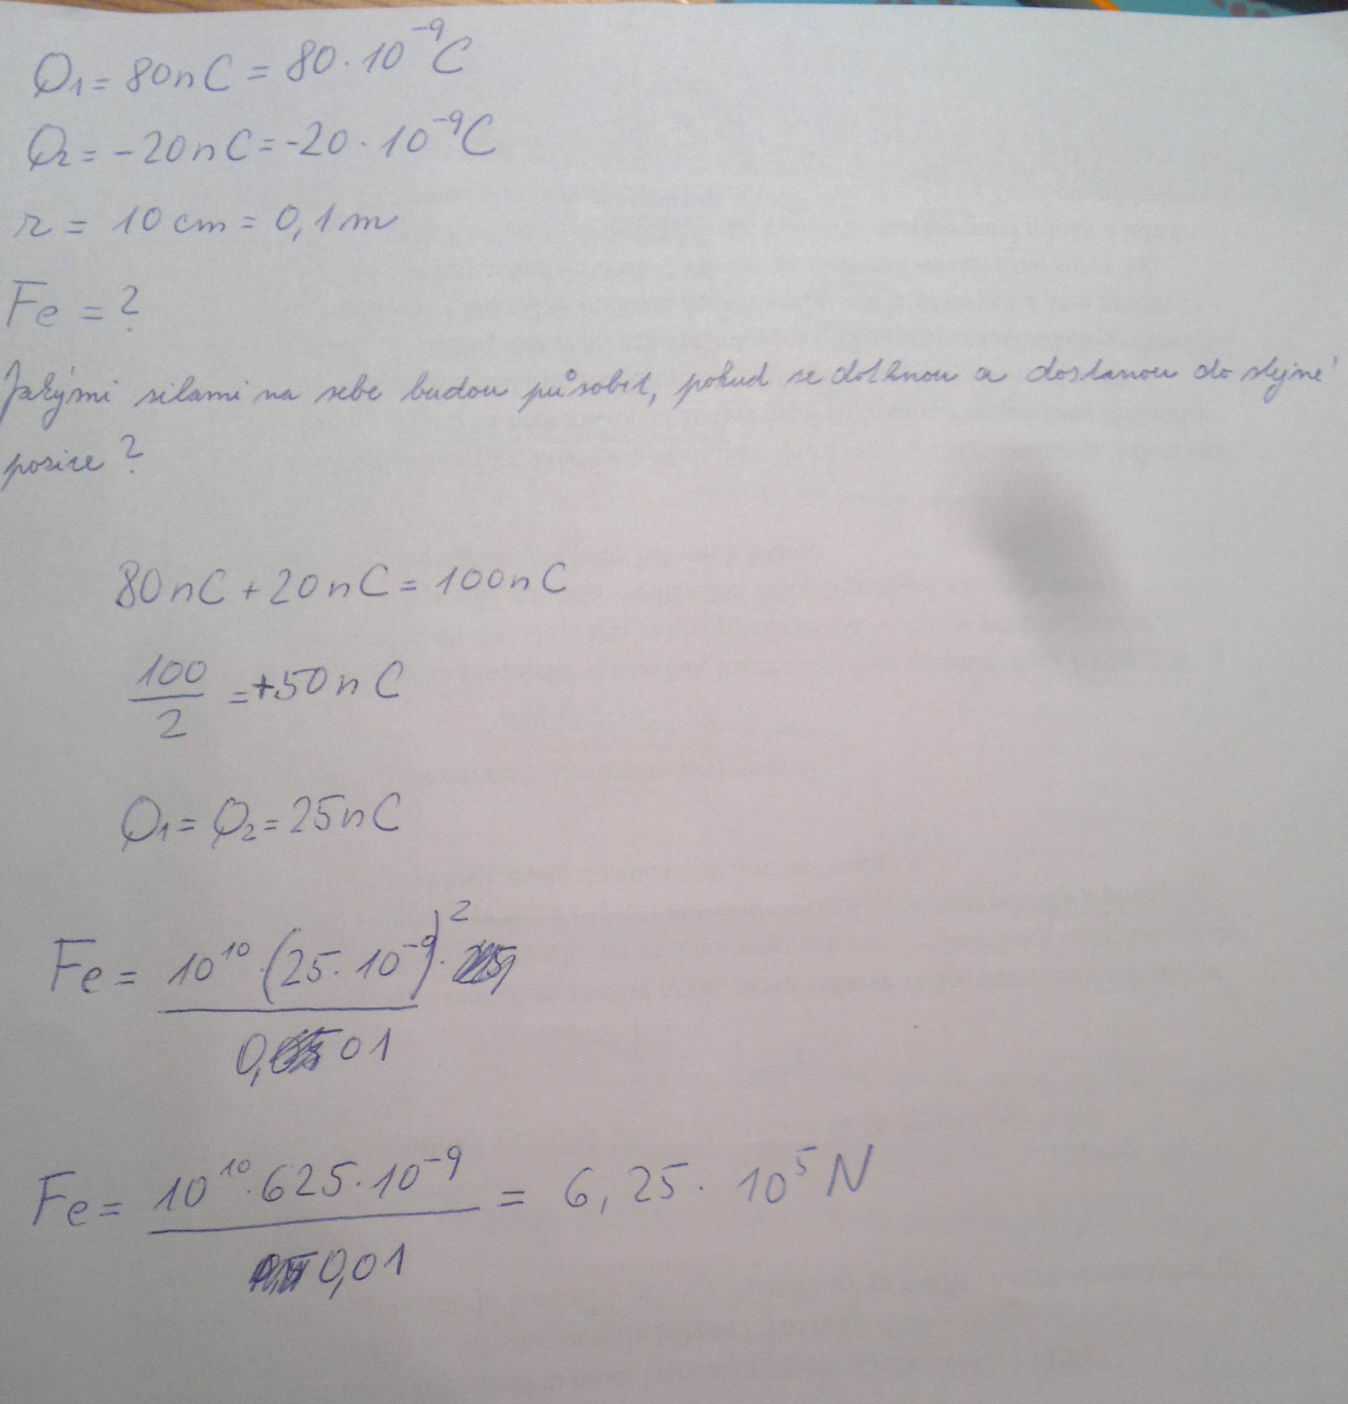 Q₁ = 80nC = 80 · 10⁻⁹C
Q₂ = -20nC = -20 · 10⁻⁹C
r = 10 cm = 0,1m
Fe = ?
Jakými silami na sebe budou působit, pokud se dotknou a dostanou do stejné
pozice ?
80nC + 20nC = 100nC
100
2
= +50nC
Q₁ = Q₂ = 25nC
Fe = 10¹⁰ · (25 · 10⁻⁹)² ·
0,01
Fe = 10¹⁰ · 625 · 10⁻⁹ = 6,25 · 10⁵N
0,01